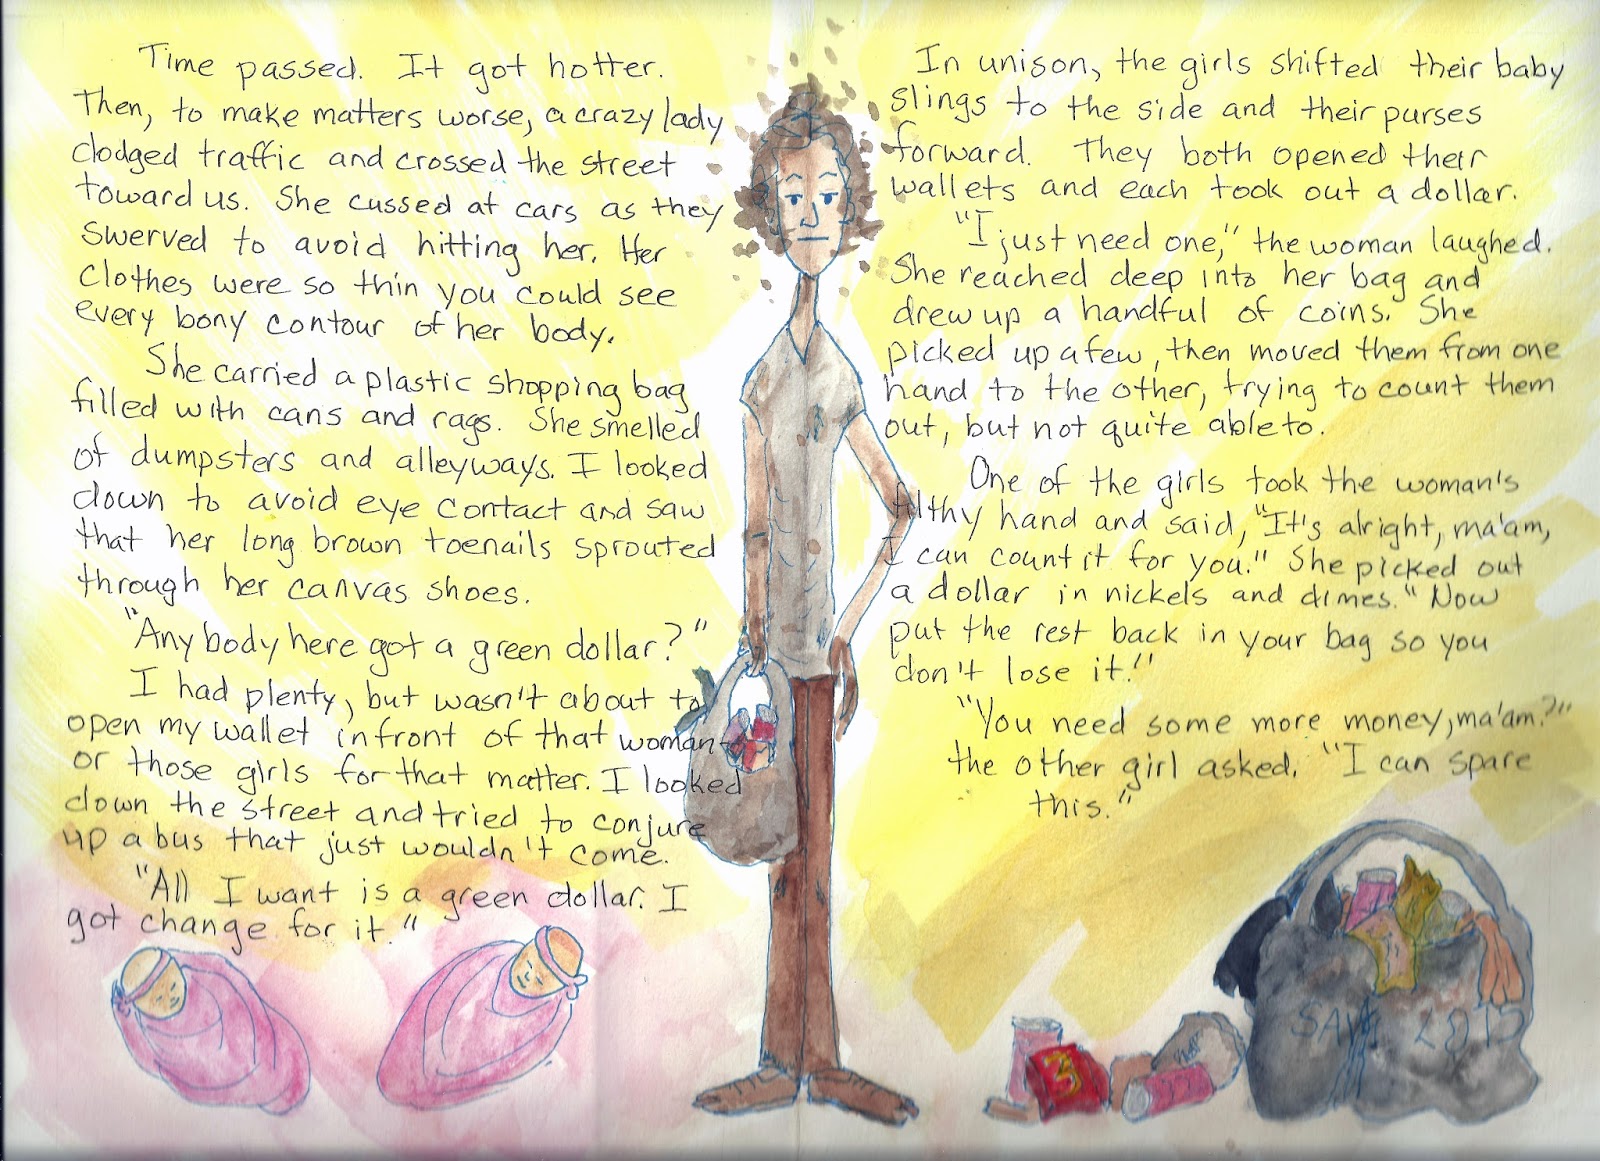 Time passed. It got hotter.
Then, to make matters worse, a crazy lady
dodged traffic and crossed the street
toward us. She cussed at cars as they
swerved to avoid hitting her. Her
clothes were so thin you could see
every bony contour of her body.
She carried a plastic shopping bag
filled with cans and rags. She smelled
of dumpsters and alleyways. I looked
down to avoid eye contact and saw
that her long brown toenails sprouted
through her canvas shoes.
"Anybody here got a green dollar?"
I had plenty, but wasn't about to
open my wallet in front of that woman
or those girls for that matter. I looked
down the street and tried to conjure
up a bus that just wouldn't come.
"All I want is a green dollar. I
got change for it."
In unison, the girls shifted their baby
slings to the side and their purses
forward. They both opened their
wallets and each took out a dollar.
"I just need one," the woman laughed.
She reached deep into her bag and
drew up a handful of coins. She
picked up a few, then moved them from one
hand to the other, trying to count them
out, but not quite able to.
One of the girls took the woman's
filthy hand and said, "It's alright, ma'am,
I can count it for you." She picked out
a dollar in nickels and dimes. "Now
put the rest back in your bag so you
don't lose it."
"You need some more money, ma'am?"
the other girl asked. "I can spare
this."
3